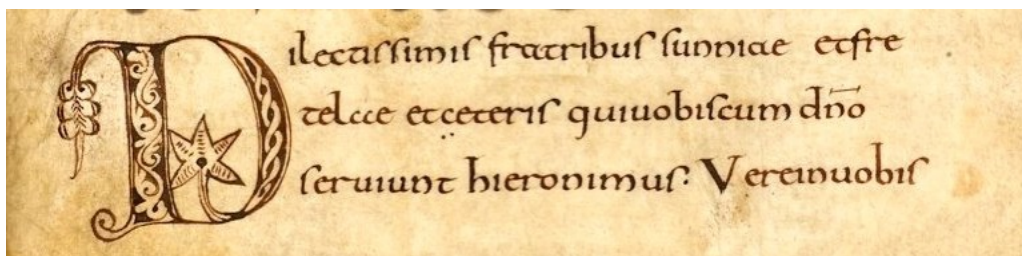 Dilectissimis fratribus sunniae et fre
telae et ceteris qui uobiscum dn̄o
seruiunt hieronimus. Vere in uobis